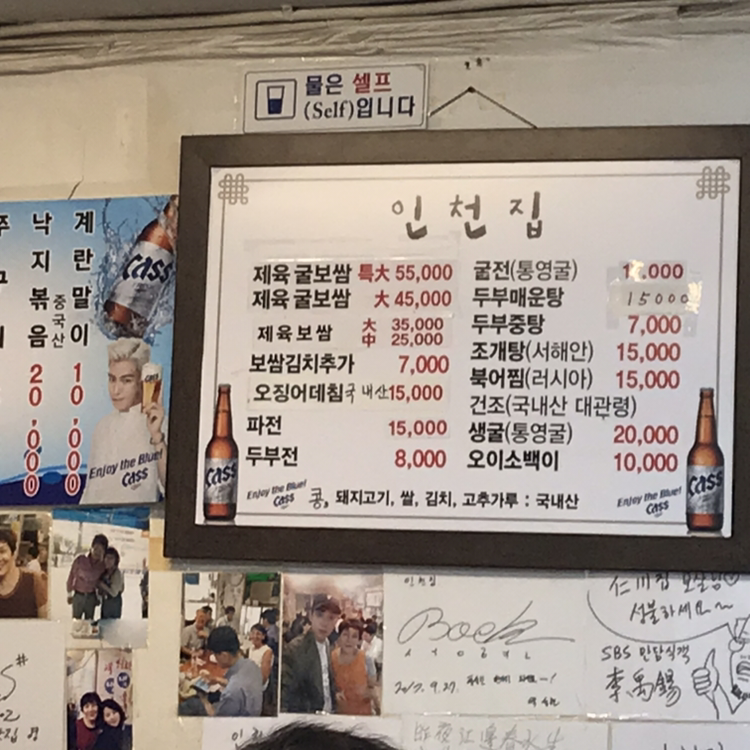 물은 셀프
(Self)입니다
인천집
제육굴보쌈 특大 55,000
제육굴보쌈 大 45,000
제육보쌈 大 35,000
中 25,000
보쌈김치추가 7,000
오징어데침국내산15,000
파전 15,000
두부전 8,000
굴전(통영굴)
두부매운탕 15000
두부중탕 7,000
조개탕(서해안) 15,000
북어찜(러시아) 15,000
건조(국내산 대관령)
생굴(통영굴) 20,000
오이소백이 10,000
Enjoy the Blue!
Cass
콩, 돼지고기, 쌀, 김치, 고추가루 : 국내산
Enjoy the Blue!
Cass
Cass
Cass
계란말이 10,000
낙지볶음 중국산 20,000
Cass
Enjoy the Blue!
Cass
인천집
2017.9.27.
仁川집 보살님♡
성불하세요~
SBS 민답식객
李禹錫